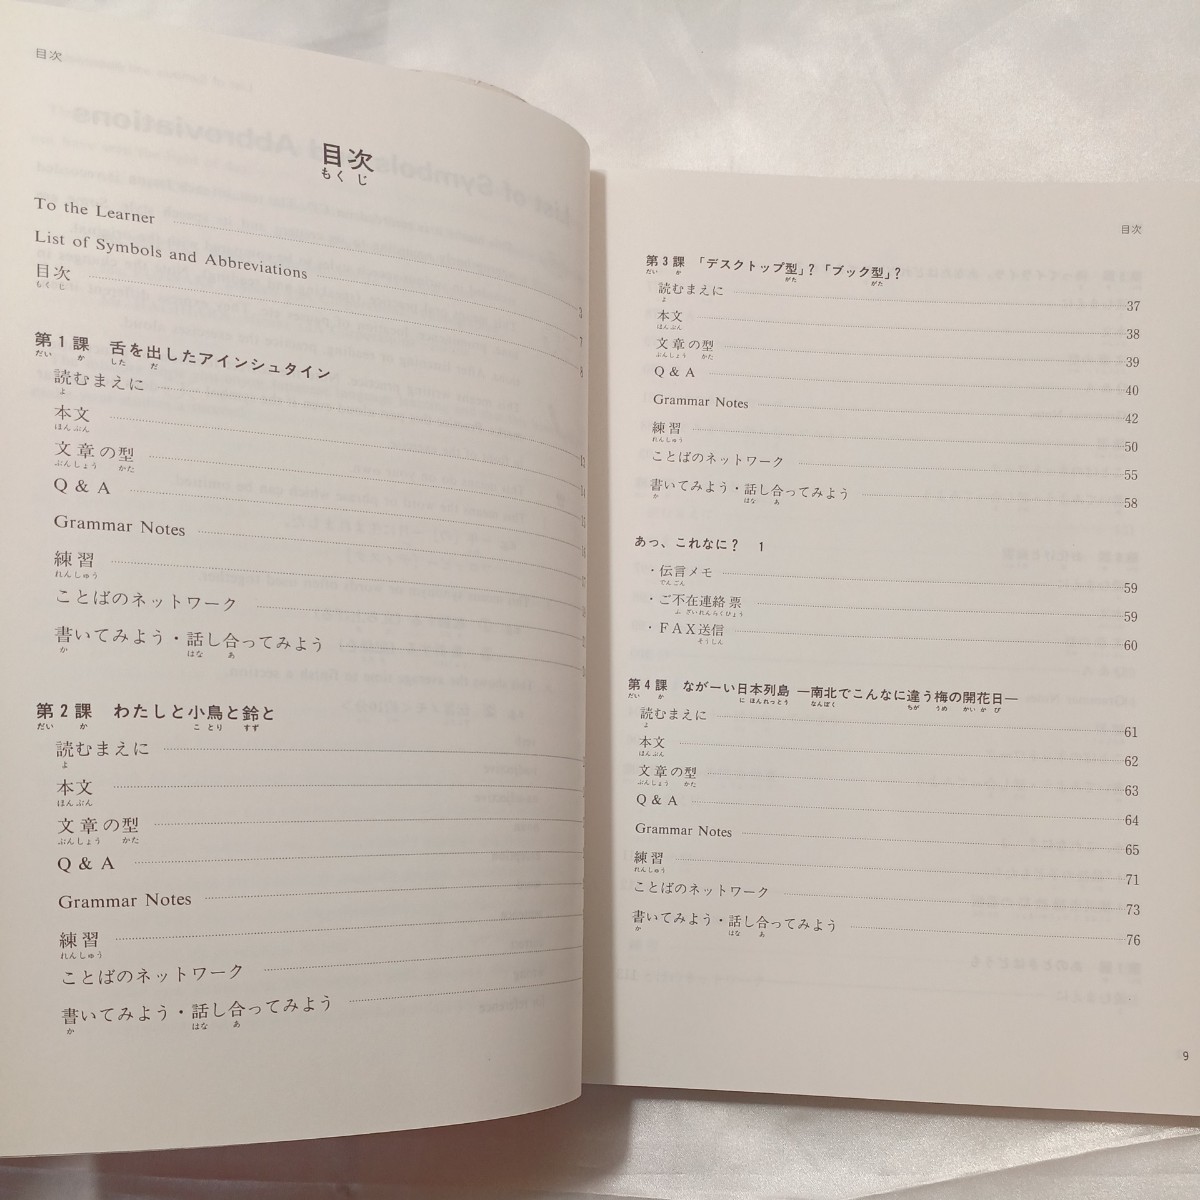 目次
目次
もくじ
To the Learner 3
List of Symbols and Abbreviations 7
目次 8
もくじ
第1課 舌を出したアインシュタイン
だい か した だ
読むまえに
よ
本文 13
ほんぶん
文章の型 14
ぶんしょう かた
Q & A 15
Grammar Notes 16
練習
れんしゅう
ことばのネットワーク
書いてみよう・話し合ってみよう
か はな あ
第2課 わたしと小鳥と鈴と
だい か こ とり すず
読むまえに
よ
本文
ほんぶん
文章の型
ぶんしょう かた
Q & A
Grammar Notes
練習
れんしゅう
ことばのネットワーク
書いてみよう・話し合ってみよう
か はな あ
目次
第3課 「デスクトップ型」?「ブック型」?
だい か がた がた
読むまえに 37
よ
本文 38
ほんぶん
文章の型 39
ぶんしょう かた
Q & A 40
Grammar Notes 42
練習 50
れんしゅう
ことばのネットワーク 55
書いてみよう・話し合ってみよう 58
か はな あ
あっ、これなに? 1
・伝言メモ 59
でんごん
・ご不在連絡票 59
ふ ざいれんらくひょう
・FAX送信 60
そうしん
第4課 ながーい日本列島 ―南北でこんなに違う梅の開花日―
だい か に ほんれっとう なんぼく ちが うめ かい か び
読むまえに 61
よ
本文 62
ほんぶん
文章の型 63
ぶんしょう かた
Q & A 64
Grammar Notes 65
練習 71
れんしゅう
ことばのネットワーク 73
書いてみよう・話し合ってみよう 76
か はな あ
9